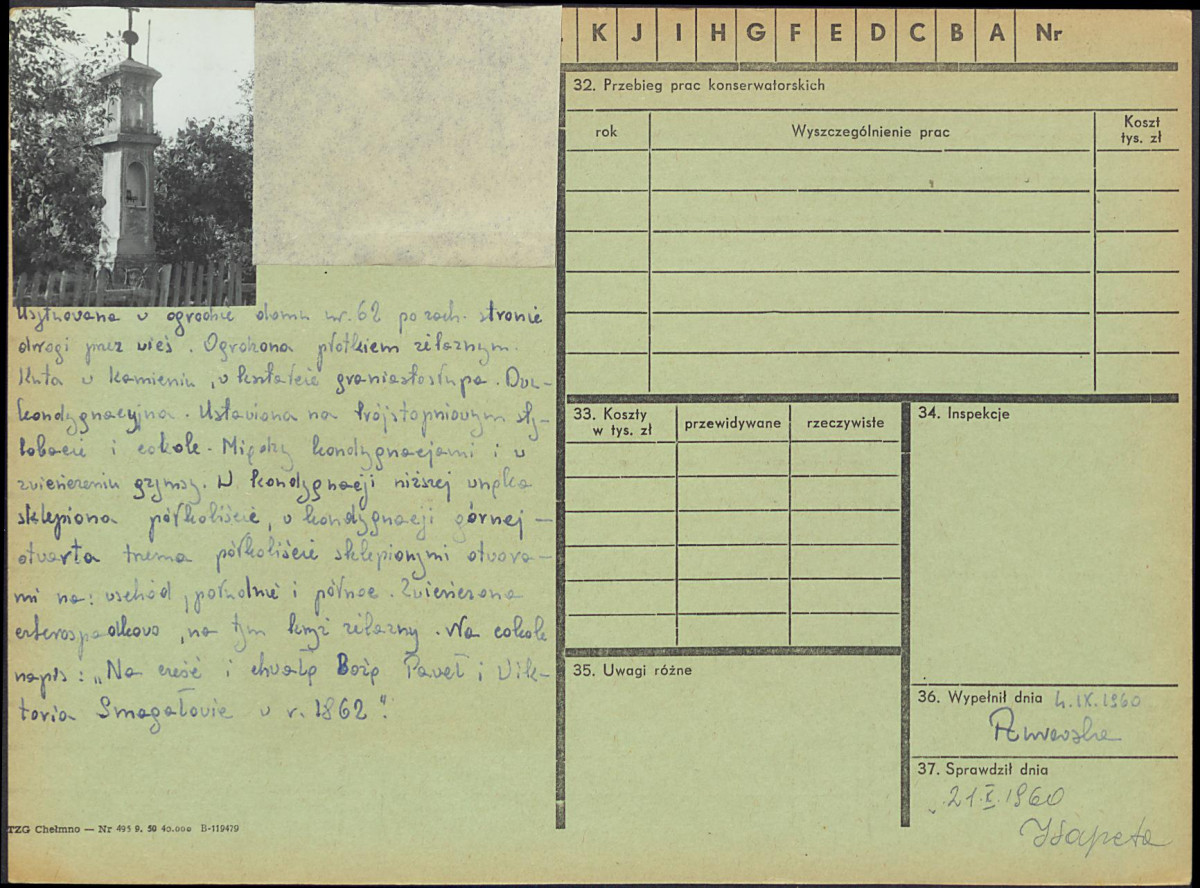 K J I H G F E D C B A Nr
Usytuowana w ogrodzie domu nr. 62 po zach. stronie
drogi przez wieś. Ogrodzona płotkiem żelaznym.
Kuta w kamieniu, w kształcie graniastosłupa. Dwu-
kondygnacyjna. Ustawiona na trójstopniowym sty-
lobacie i cokole. Między kondygnacjami i w
zwieńczeniu gzymsy. W kondygnacji niższej wnęka
sklepiona półkoliście, w kondygnacji górnej –
otwarta trzema półkoliście sklepionymi otwora-
mi na: wschód, południe i północ. Zwieńczona
czterospadkowo, na tym krzyż żelazny. Na cokole
napis: „Na cześć i chwałę Bożę Paweł i Wik-
toria Smagałowie w r. 1862".
TZG Chełmno — Nr 495 9. 50 40.000 B-119479
32. Przebieg prac konserwatorskich
rok Wyszczególnienie prac Koszt tys. zł
33. Koszty w tys. zł przewidywane rzeczywiste
34. Inspekcje
35. Uwagi różne
36. Wypełnił dnia 4.IX.1960
37. Sprawdził dnia
21.X.1960